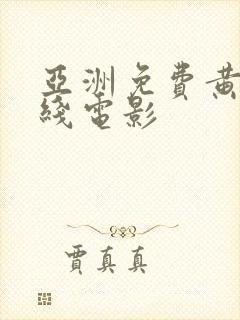 亞洲免費黃
綫電影
賈真真